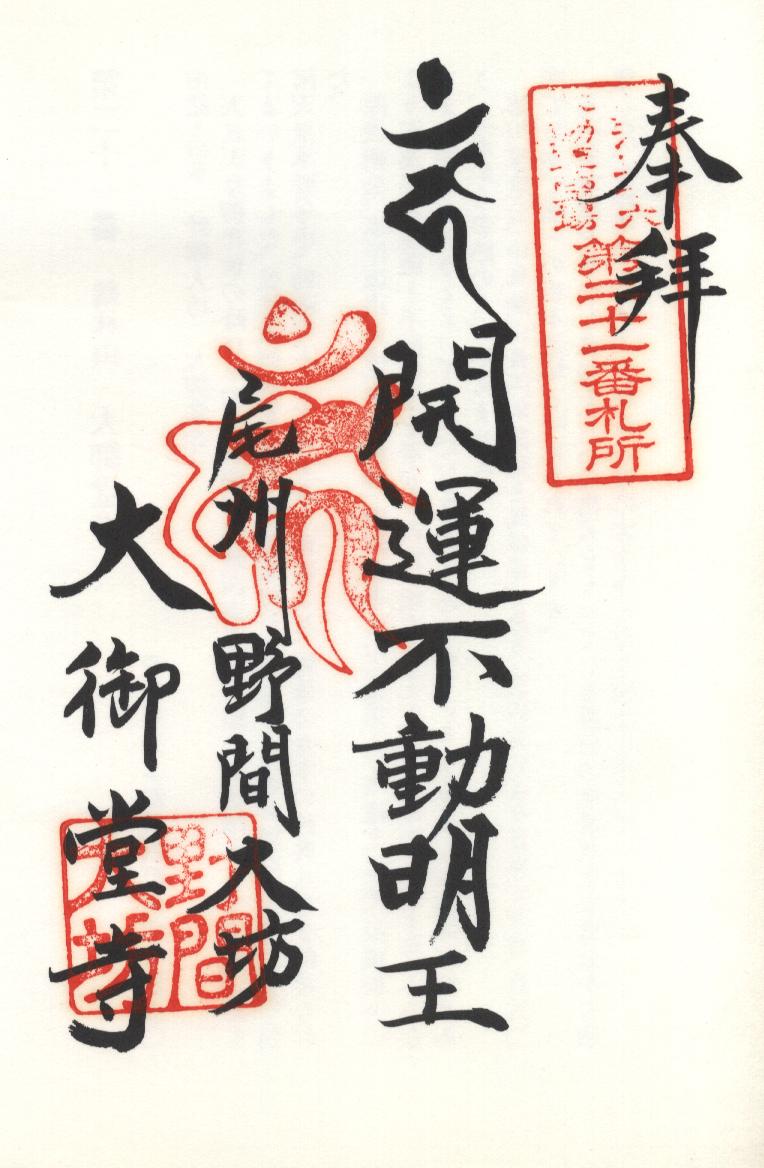 奉拝
第二十一番札所
開運不動明王
尾州野間大坊
大御堂寺
野間
大坊